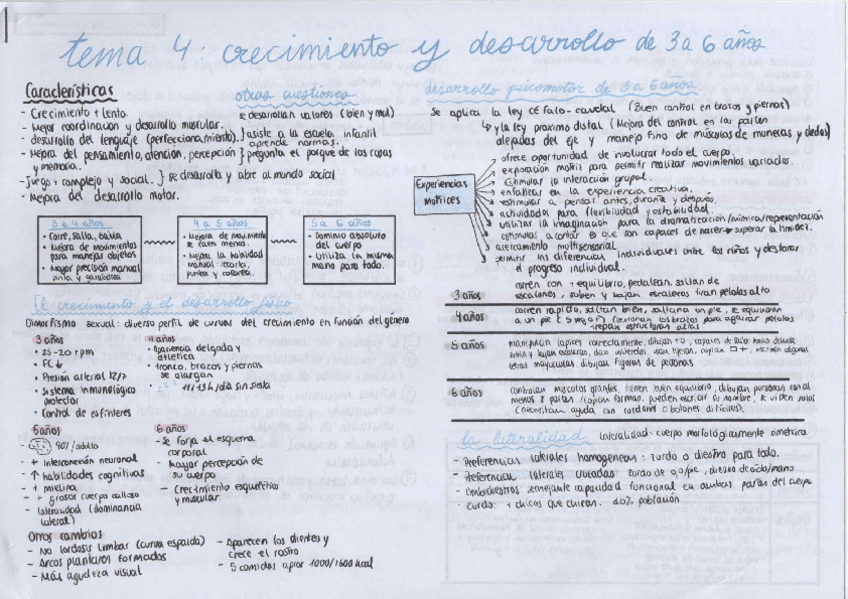 tema 4: crecimiento y desarrollo de 3 a 6 años
Características
- Crecimiento + lento.
- Mejor coordinación y desarrollo muscular.
- desarrollo del lenguaje (perfeccionamiento).
- Mejora del pensamiento, atención, percepción
y memoria.
- Juego + complejo y social. } se desarrolla y abre al mundo social
- Mejora del desarrollo motor.
otras cuestiones
se desarrollan valores (bien y mal)
asiste a la escuela infantil
aprende normas.
pregunta el porque de las cosas
3 a 4 años
• Corre, salta, baila
• Mejora de movimientos
para manejar objetos
• Mayor precisión manual
pinta y garabatea
4 a 5 años
• Mejora de movimiento
se caen menos.
• Mejora la habilidad
manual: recorta,
pinta y colorea.
5 a 6 años
• Dominio absoluto
del cuerpo
• Utiliza la misma
mano para todo.
El crecimiento y el desarrollo físico
Dimorfismo sexual: diverso perfil de curvas del crecimiento en función del género
3 años
• 25-20 rpm
• FC ↓
• Presión arterial
• Sistema inmunológico
protector
• Control de esfínteres
4 años
• Apariencia delgada y
atlética
• tronco, brazos y piernas
se alargan
11-13h/día sin siesta
5 años
- 90% adulto
- + Interconexión neuronal
- ↑ habilidades cognitivas
- + mielina
- + grosor cuerpo calloso
- lateralidad (dominancia
lateral)
6 años
- Se forja el esquema
corporal
- Mayor percepción de
su cuerpo
- Crecimiento esquelético
y muscular
Otros cambios
- No lordosis lumbar (curva espalda)
- Arcos plantares formados
- Más agudeza visual
- Aparecen los dientes y
crece el rostro
- 5 comidas aprox 1000/1600 kcal
desarrollo psicomotor de 3 a 6 años
Se aplica la ley céfalo-caudal (Buen control en brazos y piernas)
↳ y la ley próximo distal (Mejora del control en las partes
alejadas del eje y manejo fino de músculos de muñecas y dedos)
Experiencias
motrices
ofrece oportunidad de involucrar todo el cuerpo.
exploración motriz para permitir realizar movimientos variados.
Estimular la interacción grupal.
enfatizar en la experiencia creativa.
estimular a pensar antes, durante y después,
actividades para flexibilidad y estabilidad.
utilizar la imaginación para la dramatización/mímica/representación
estimular a contar lo que son capaces de hacer → superar la timidez.
acercamiento multisensorial
permitir las diferencias individuales entre los niños y destacar
el progreso individual.
3 años
corren con + equilibrio, pedalean, saltan de
escalones, suben y bajan escaleras tiran pelotas alto
4 años
corren rápido, saltan bien, saltan a un pie, se equilibran
a un pie (5 seg) flexionan los brazos para agarrar pelotas
repiten estructuras altas
5 años
manipulan lápices correctamente, dibujan
suben y bajan escaleras, dan volteretas, usan tijeras, copian □ +, escriben algunas
letras mayúsculas, dibujan figuras de personas.
6 años
controlan músculos grandes, tienen buen equilibrio, dibujan personas con al
menos 8 partes, copian formas, pueden escribir su nombre, se visten solos
(necesitan ayuda con cordones o botones difíciles).
la lateralidad
lateralidad: cuerpo morfológicamente simétrico
- Preferencias laterales homogéneas: zurdo o diestro para todo.
- Preferencias laterales cruzadas: zurdo de ojo/pie, diestro de oído/mano
- Ambidiestros: semejante capacidad funcional en ambas partes del cuerpo
- zurdo: + chicos que chicas. 10% población